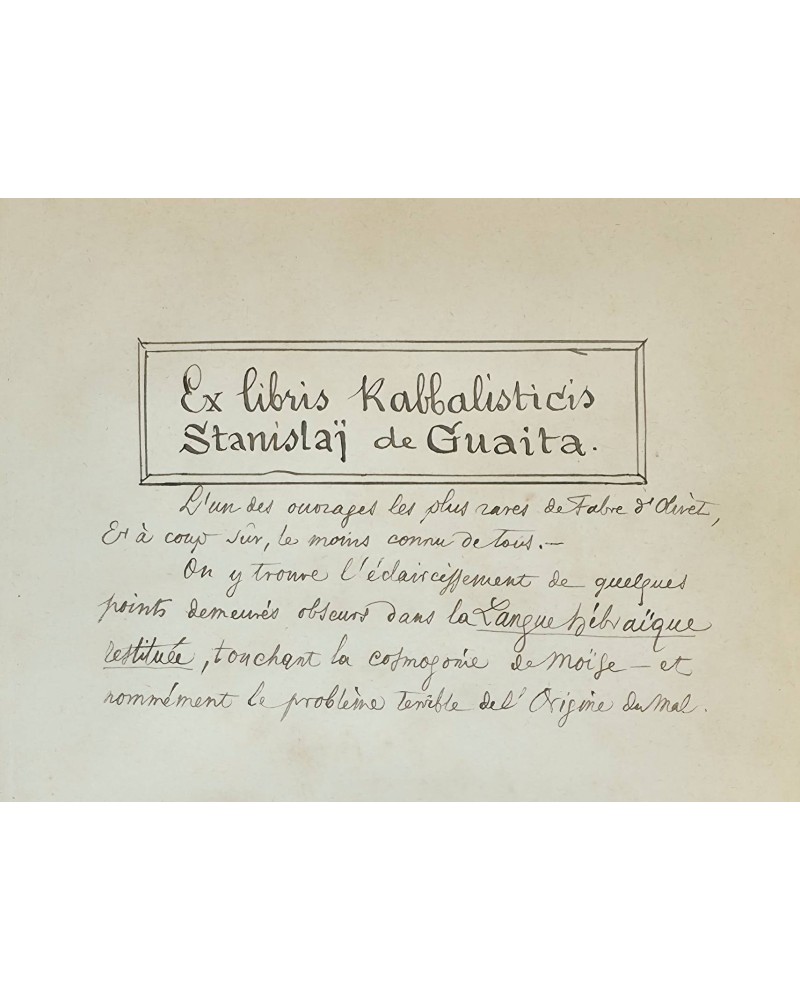 Ex libris Kabbalisticis
Stanislaï de Guaita.
L'un des ouvrages les plus rares de Fabre d'Olivet,
Et à coup sûr, le moins connu de tous. —
On y trouve l'éclaircissement de quelques
points demeurés obscurs dans la Langue hébraïque
restituée, touchant la cosmogonie de Moïse — et
nommément le problème terrible de l'Origine du Mal.